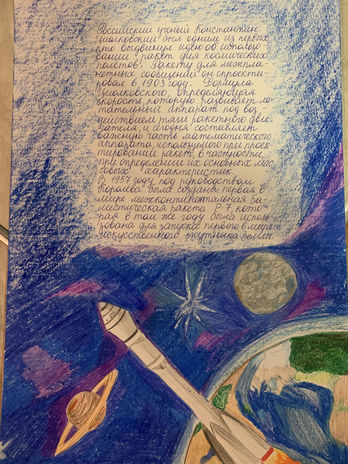 Российский учёный Константин
Циолковский был одним из первых,
кто выдвинул идею об использо-
вании ракет для космических
полётов. Ракету для межпла-
нетных сообщений он спроекти-
ровал в 1903 году. Формула
Циолковского, определяющая
скорость которую развивает ле-
тательный аппарат под воз-
действием тяги ракетного дви-
гателя, и сегодня составляет
важную часть математического
аппарата, используемого при проек-
тировании ракет, в частности,
при определении их основных мас-
совых характеристик.
В 1957 году под руководством
Королёва была создана первая в
мире межконтинентальная бал-
листическая ракета Р-7, кото-
рая в том же году была исполь-
зована для запуска первого в мире
искусственного спутника Земли.